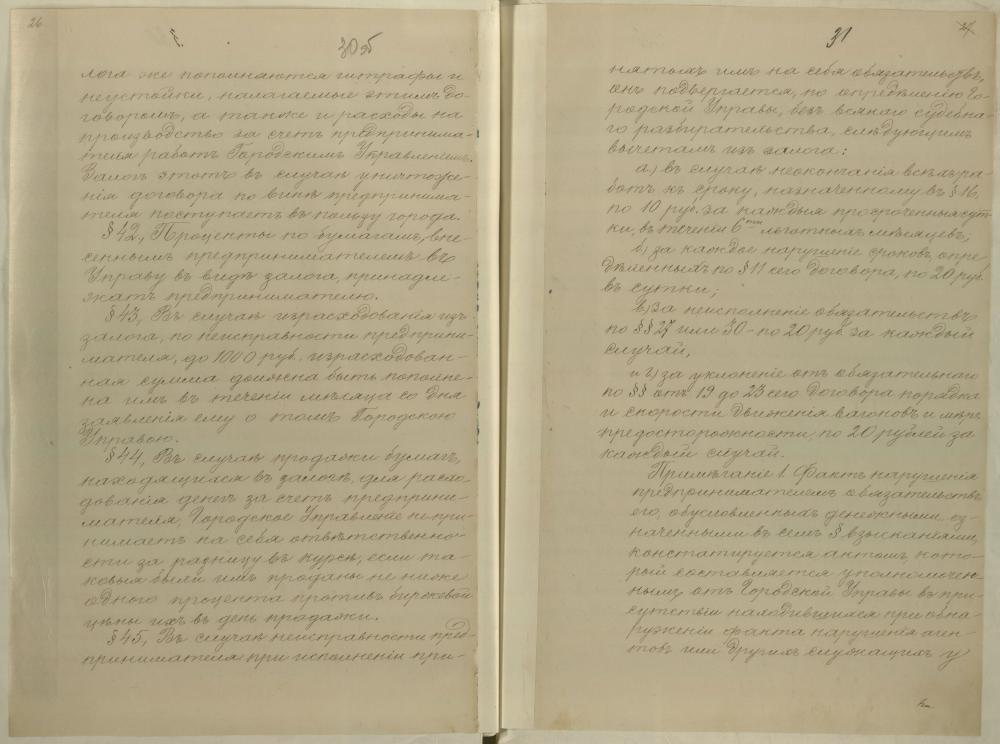 26
30об
лога же пополняются штрафы и
неустойки, налагаемые этимъ до-
говоромъ, а также и расходы на
производство за счетъ предпринима-
теля работъ Городскимъ Управленіемъ.
Залогъ этотъ въ случаѣ уничтоже-
нія договора по винѣ предпринима-
теля поступаетъ въ пользу города.
§42, Проценты по бумагамъ, вне-
сеннымъ предпринимателемъ въ
Управу въ видѣ залога, принадле-
жатъ предпринимателю.
§43, Въ случаѣ израсходованія изъ
залога, по неисправности предприни-
мателя, до 1000 руб., израсходован-
ная сумма должна быть пополне-
на имъ въ теченіи мѣсяца со дня
заявленія ему о томъ Городскою
Управою.
§44, Въ случаѣ продажи бумагъ,
находящихся въ залогѣ, для расхо-
дованія денегъ за счетъ предприни-
мателя, Городское Управленіе не при-
нимаетъ на себя отвѣтственно-
сти за разницу въ курсѣ, если та-
ковыя были имъ проданы не ниже
одного процента противъ биржевой
цѣны ихъ въ день продажи.
§45, Въ случаѣ неисправности пред-
принимателя при исполненіи при-
31
27
нятыхъ имъ на себя обязательствъ,
онъ подвергается, по опредѣленію Го-
родской Управы, безъ всякаго судебна-
го разбирательства, слѣдующимъ
вычетамъ изъ залога:
а) въ случаѣ неокончанія всѣхъ ра-
ботъ къ сроку, назначенному въ §16,
по 10 руб. за каждыя просроченныя сут-
ки, въ теченіи 6ти льготныхъ мѣсяцевъ;
б) за каждое нарушеніе сроковъ, опре-
дѣленныхъ по §11 сего договора, по 20 руб.
въ сутки;
в) За неисполненіе обязательствъ
по §§27 или 30 - по 20 руб. за каждый
случай,
и г) за уклоненіе отъ обязательнаго
по §§ отъ 19 до 23 сего договора порядка
и скорости движенія вагоновъ и мѣръ
предосторожности, по 20 рублей за
каждый случай.
Примѣчаніе 1. Фактъ нарушенія
предпринимателемъ обязательствъ
его, обусловленныхъ денежными, оз-
наченными въ семъ § взысканіями,
констатируется актомъ, кото-
рый составляется уполномочен-
нымъ отъ Городской Управы въ при-
сутствіи находившихся при обна-
руженіи факта нарушенія аген-
товъ или другихъ служащихъ у